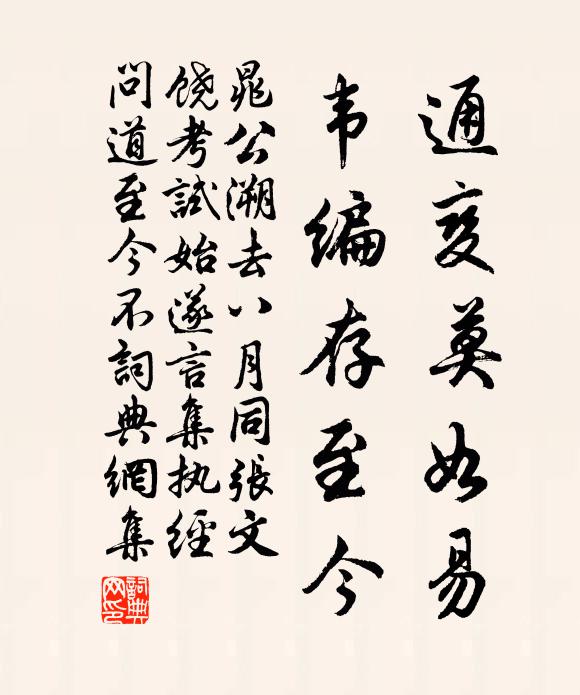 通变莫如易
韦编存至今
晁公溯去八月同張文
饶考試始遂言集执經
問道至今不詞典網集
詞典
网印